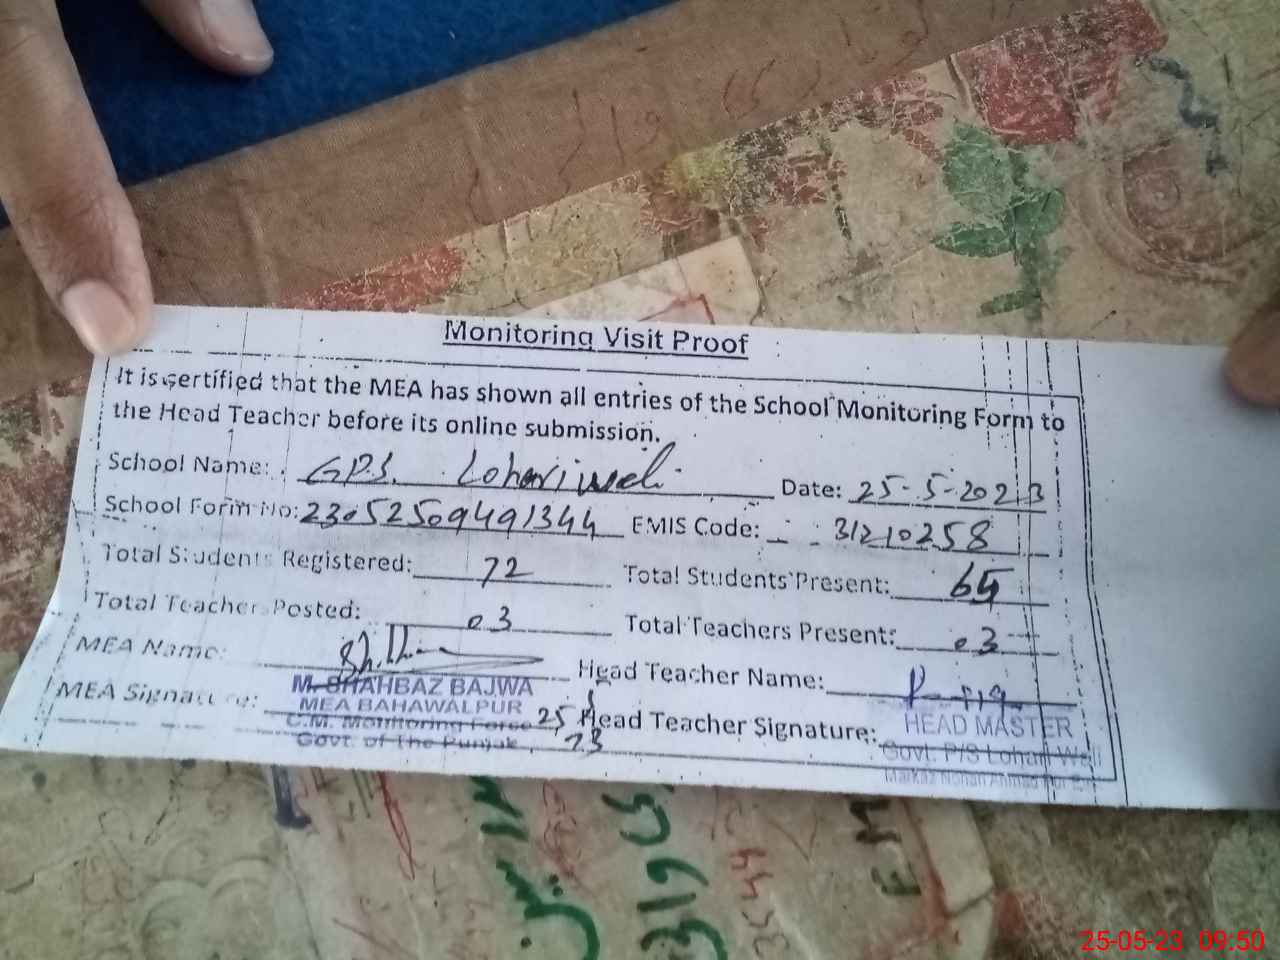 Monitoring Visit Proof
It is certified that the MEA has shown all entries of the School Monitoring Form to
the Head Teacher before its online submission.
School Name: GPS. Lohariwali Date: 25-5-2023
School Form No: 23052509491344 EMIS Code: 31210258
Total Students Registered: 72 Total Students Present: 65
Total Teacher Posted: 03 Total Teachers Present: 03
MEA Name: Head Teacher Name:
M. SHAHBAZ BAJWA
MEA Signature: MEA BAHAWALPUR Head Teacher Signature: HEAD MASTER
C.M. Monitoring Force 25 Govt. P/S Lohari Wali
Govt. of The Punjab 23
319
EM
25-05-23 09:50